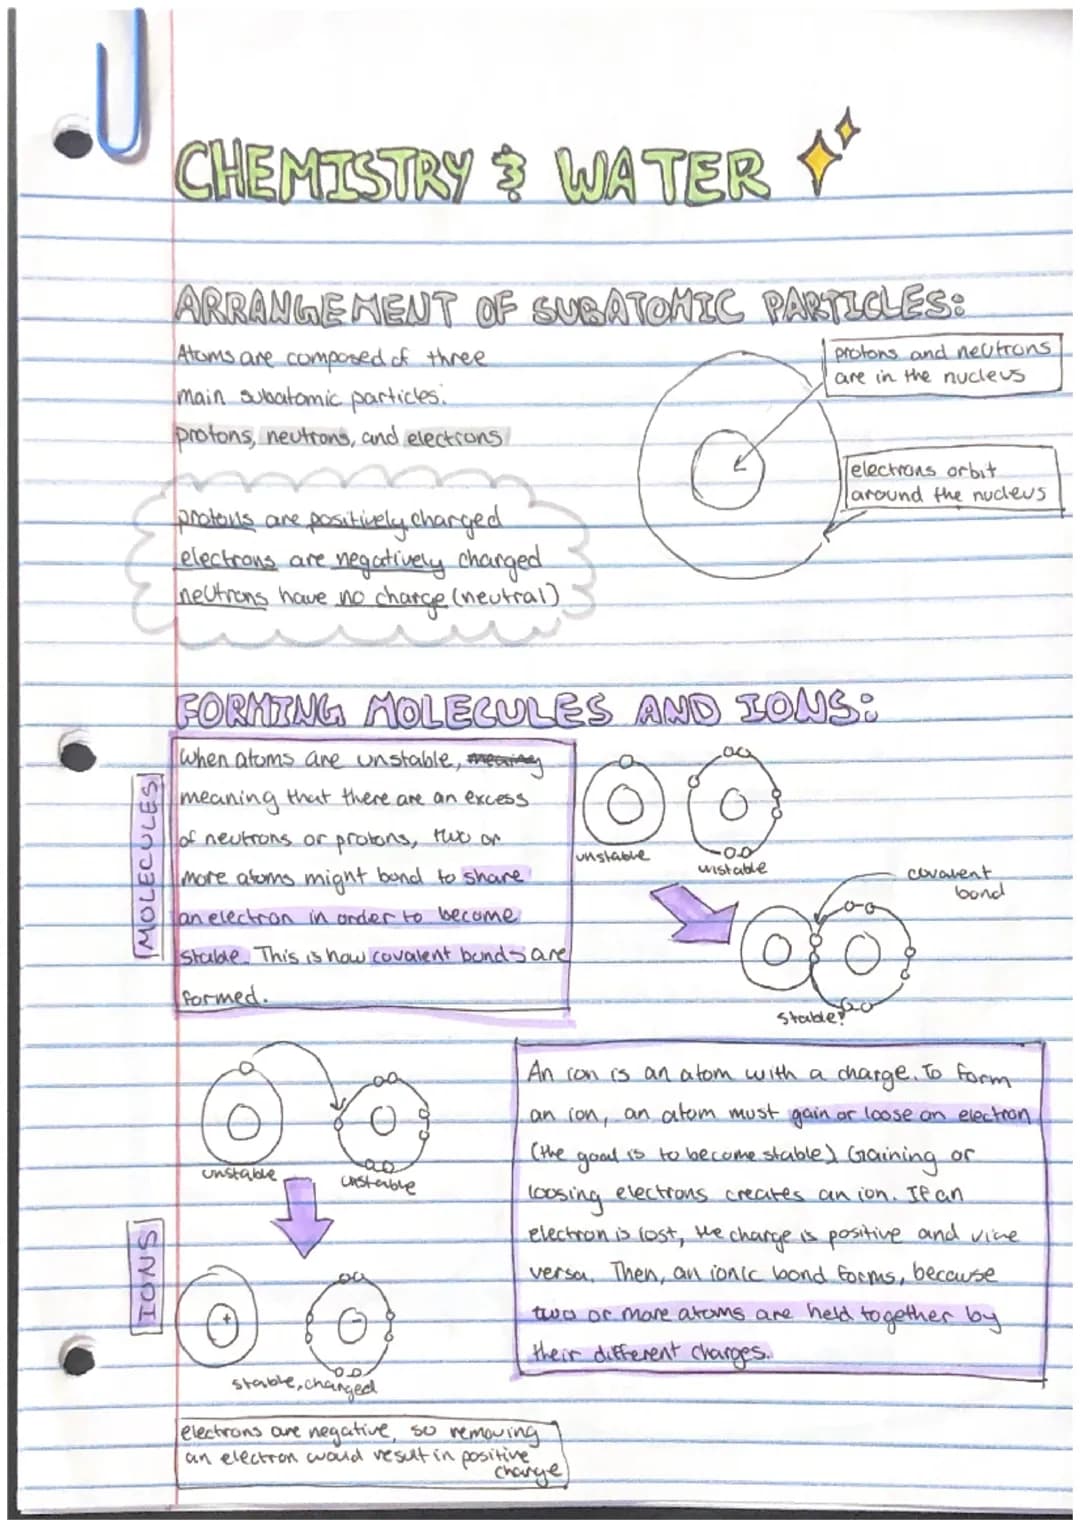 CHEMISTRY & WATER
ARRANGEMENT OF SUBATOMIC PARTICLES:
Atoms are composed of three
main subatomic particles:
protons, neutrons, and electrons
protons and neutrons
are in the nucleus
electrons orbit
around the nucleus
protons are positively charged
electrons are negatively charged
neutrons have no charge (neutral)
FORMING MOLECULES AND IONS:
MOLECULES
When atoms are unstable, meaning
meaning that there are an excess
of neutrons or protons, two or
more atoms might bond to share
an electron in order to become
stable. This is how covalent bonds are
formed.
unstable
unstable
covalent
bond
stable!
unstable
unstable
IONS
stable, charged
An ion is an atom with a charge. To form
an ion, an atom must gain or loose an electron
(the goal is to become stable). Gaining or
loosing electrons creates an ion. If an
electron is lost, the charge is positive and vice
versa. Then, an ionic bond forms, because
two or more atoms are held together by
their different charges.
+
-
electrons are negative, so removing
an electron would result in positive
charge